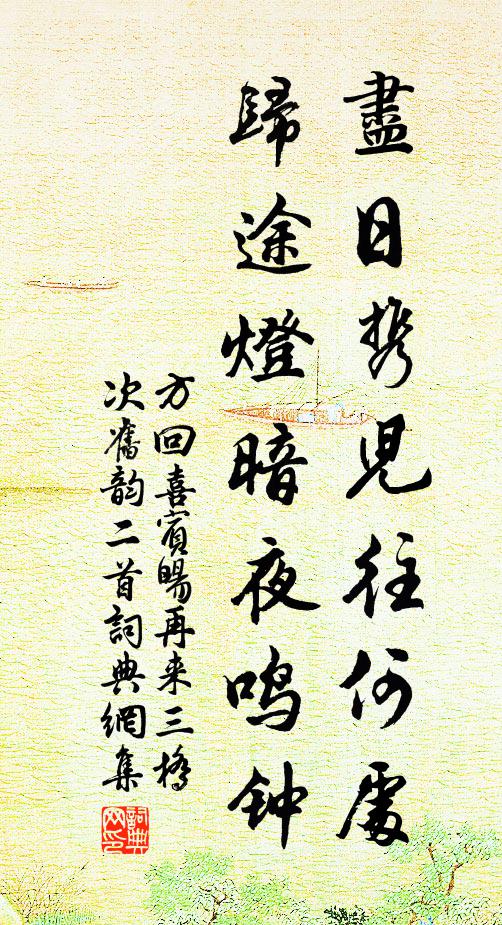 盡日携兒往何處
歸途燈暗夜鳴钟
方回喜賓暘再来三橋
次舊韵二首詞典網集
詞典
网印